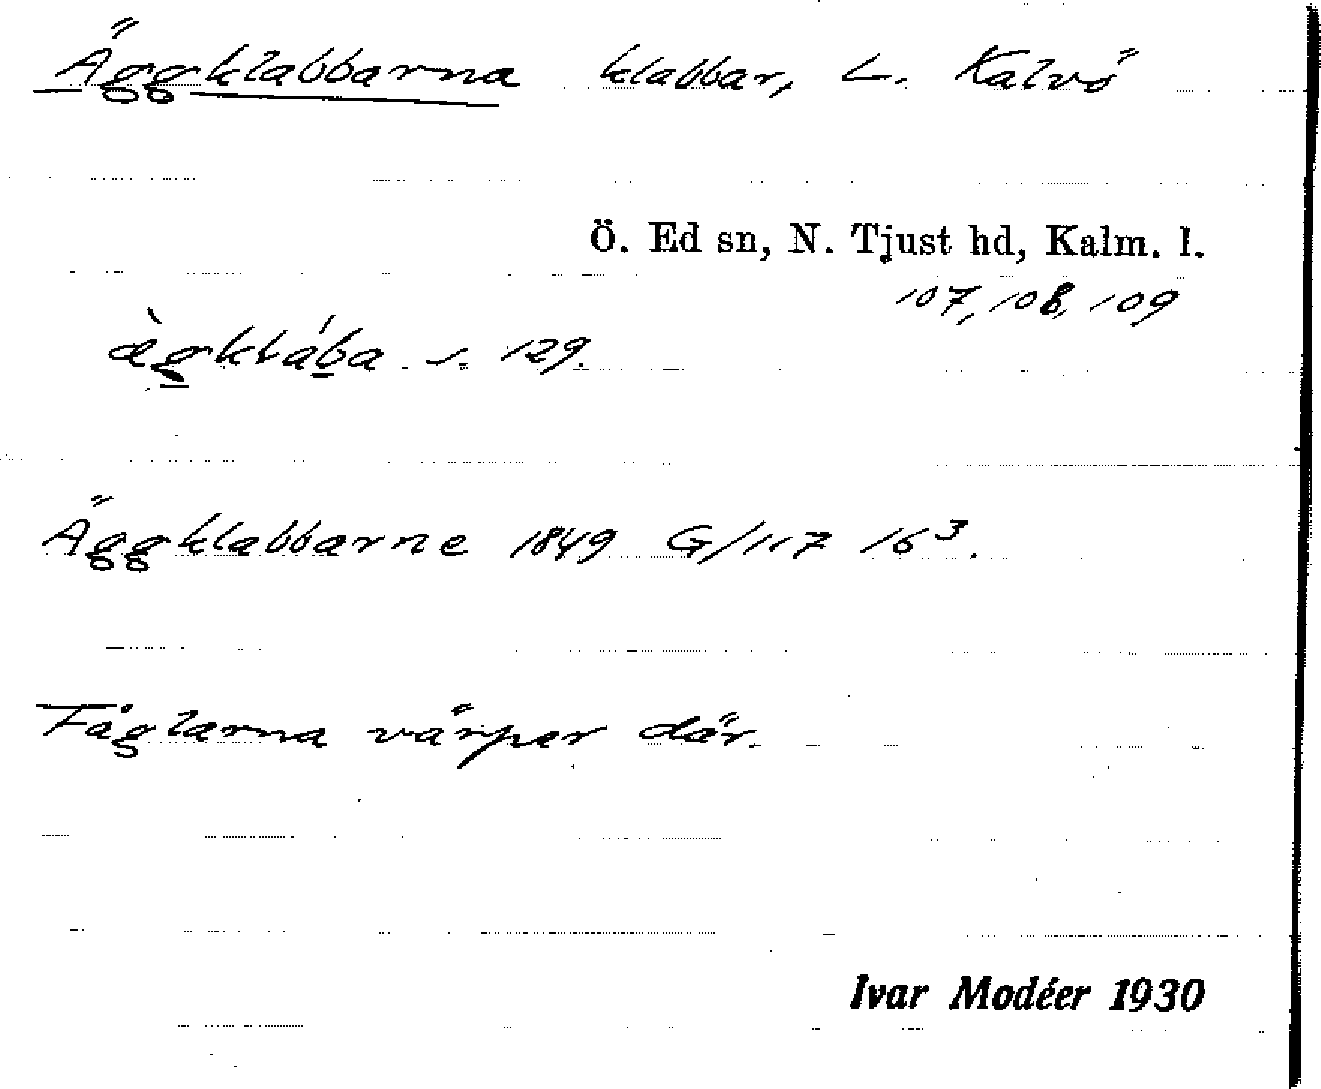 Äggklabbarna klabbar, L. Kalvö
Ö. Ed sn, N. Tjust hd, Kalm. l.
107, 108, 109
ä̀gklába s. 129.
Äggklabbarne 1849 G/117 16³.
Fåglarna värper där.
Ivar Modéer 1930